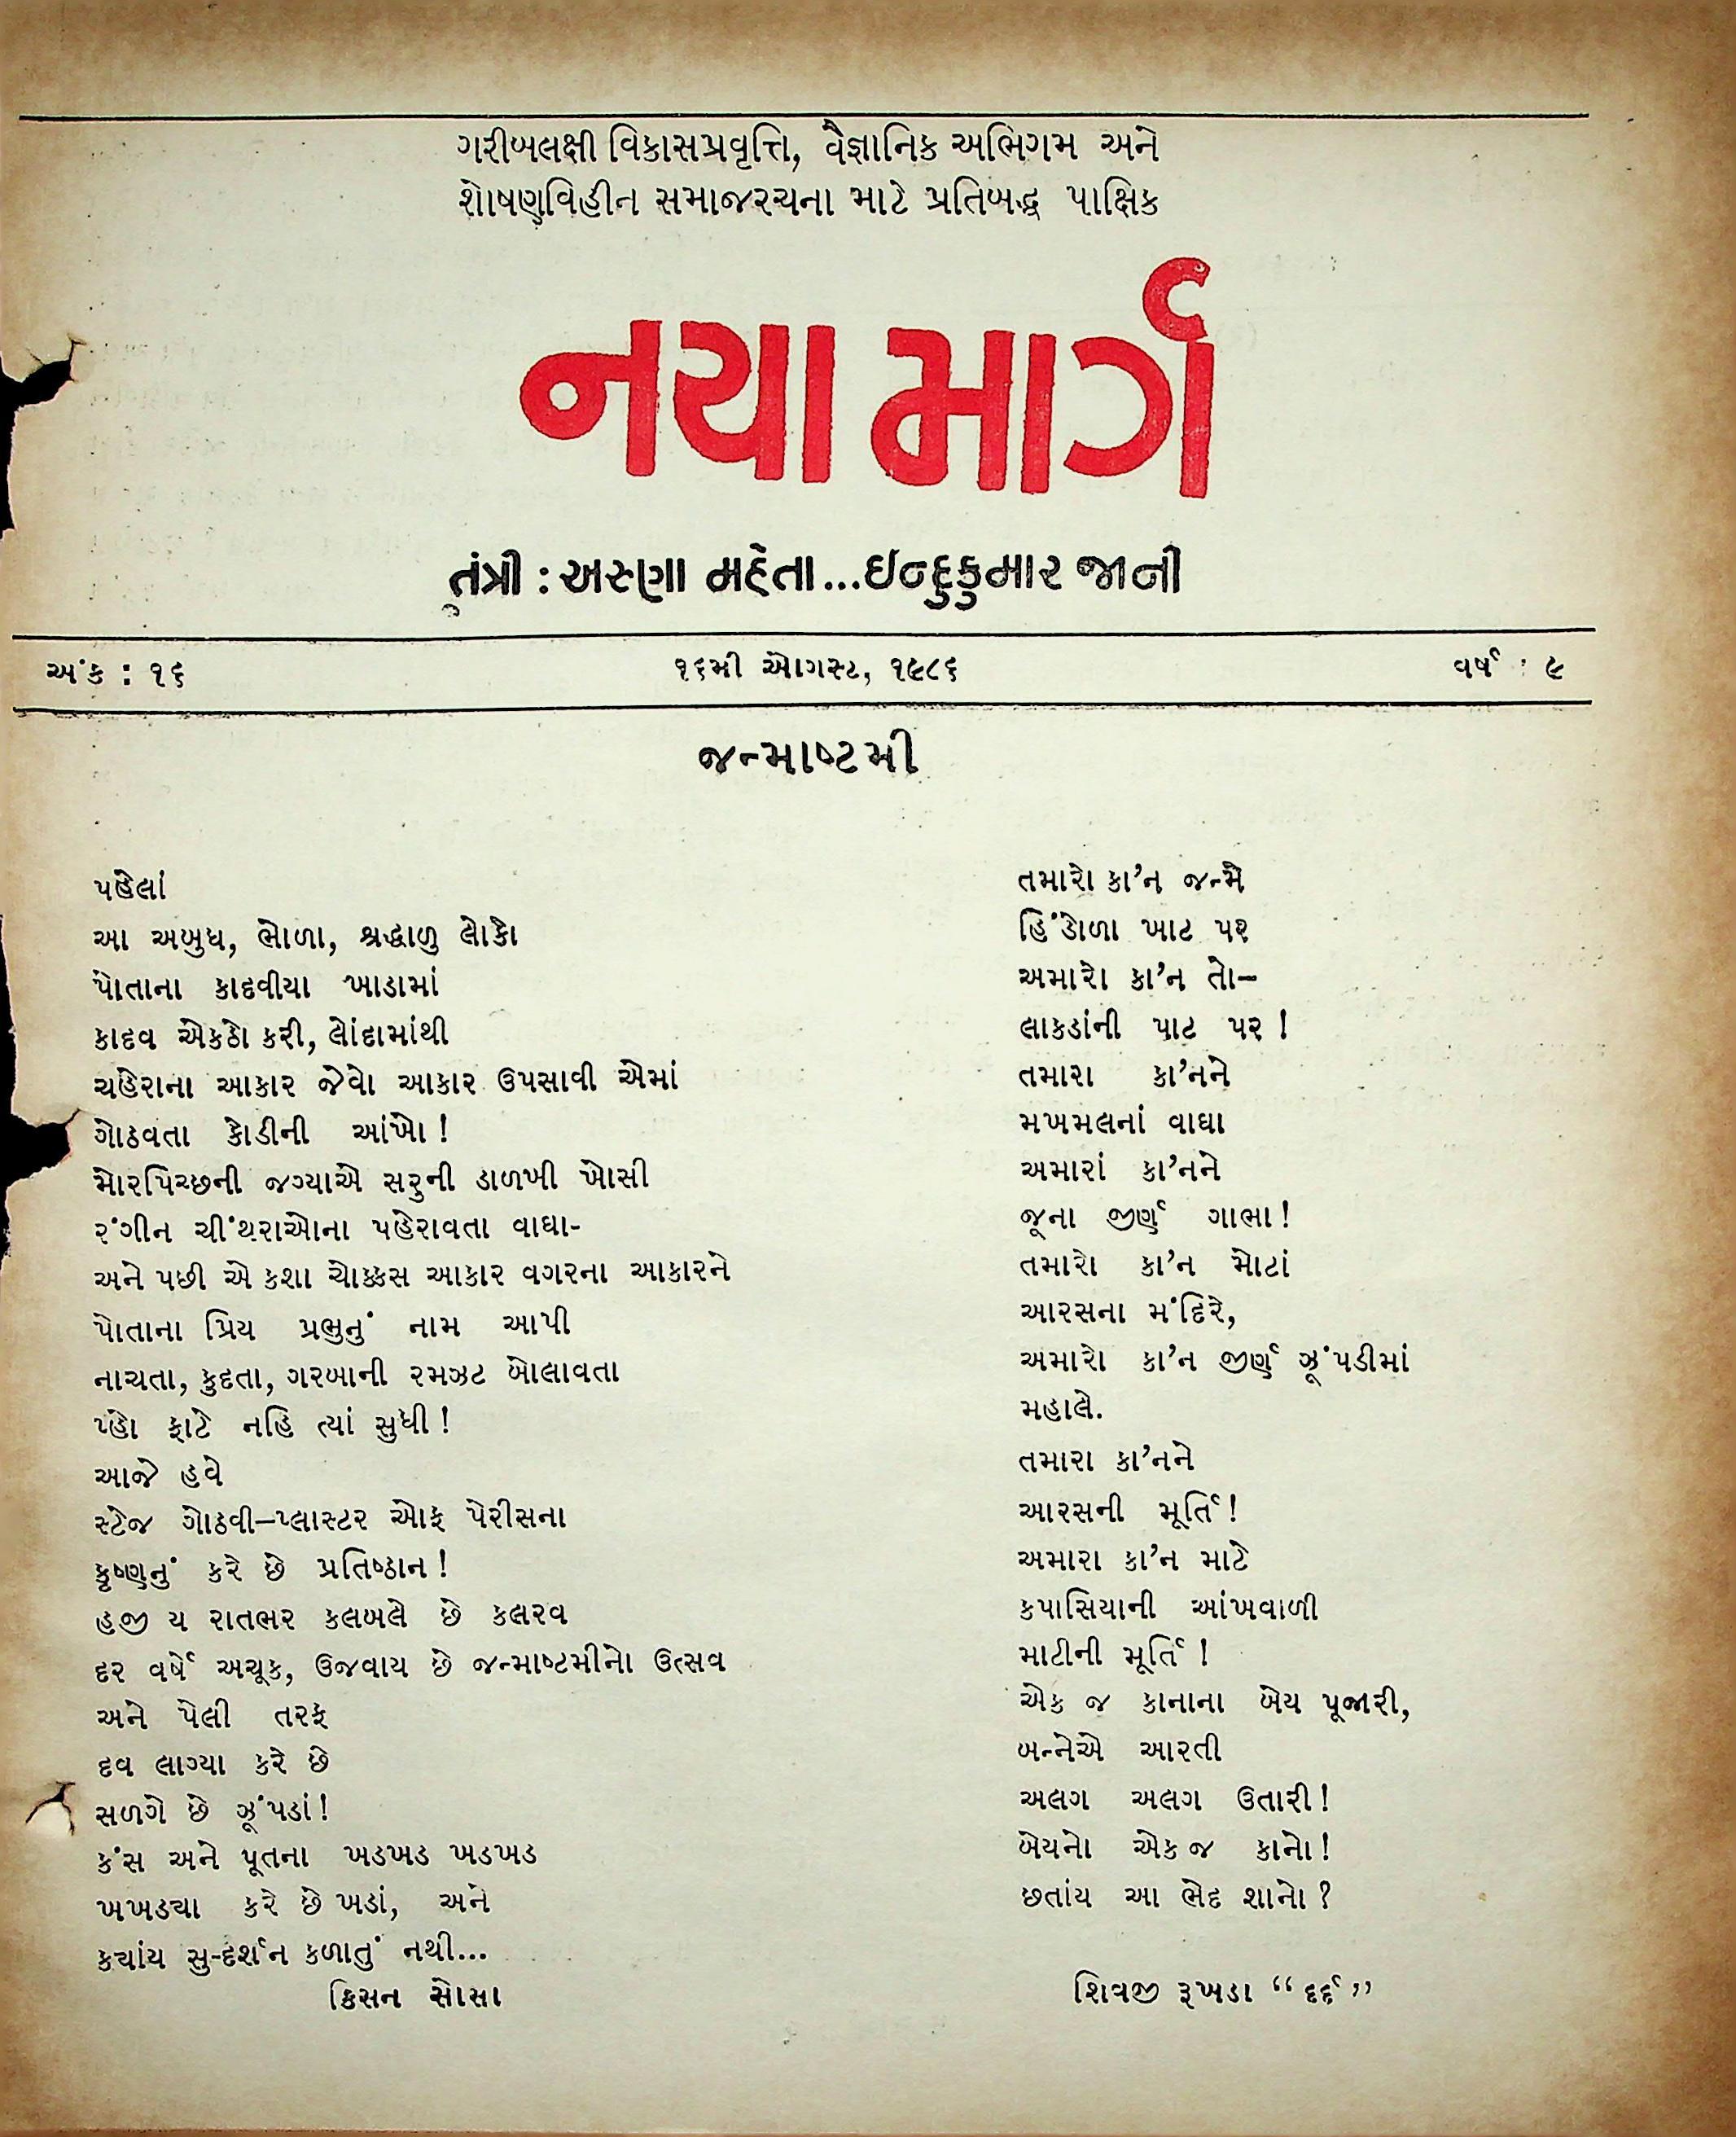 ગરીબલક્ષી વિકાસપ્રવૃત્તિ, વૈજ્ઞાનિક અભિગમ અને
શોષણવિહીન સમાજરચના માટે પ્રતિબદ્ધ પાક્ષિક
નયા માર્ગ
તંત્રી : અરુણા મહેતા...ઇન્દુકુમાર જાની
અંક : ૧૬ ૧૬મી ઓગસ્ટ, ૧૯૮૬ વર્ષ : ૯
જન્માષ્ટમી
પહેલાં
આ અબુધ, ભોળા, શ્રદ્ધાળુ લોકો
પોતાના કાદવીયા ખાડામાં
કાદવ એકઠો કરી, લોંદામાંથી
ચહેરાના આકાર જેવો આકાર ઉપસાવી એમાં
ગોઠવતા કોડીની આંખો !
મોરપિચ્છની જગ્યાએ સરુની ડાળખી ખોસી
રંગીન ચીંથરાઓના પહેરાવતા વાઘા-
અને પછી એ કશા ચોક્કસ આકાર વગરના આકારને
પોતાના પ્રિય પ્રભુનું નામ આપી
નાચતા, કુદતા, ગરબાની રમઝટ બોલાવતા
પ્હો ફાટે નહિ ત્યાં સુધી !
આજે હવે
સ્ટેજ ગોઠવી–પ્લાસ્ટર ઓફ પેરીસના
કૃષ્ણનું કરે છે પ્રતિષ્ઠાન !
હજી ય રાતભર કલબલે છે કલરવ
દર વર્ષે અચૂક, ઉજવાય છે જન્માષ્ટમીનો ઉત્સવ
અને પેલી તરફ
દવ લાગ્યા કરે છે
સળગે છે ઝૂંપડાં !
કંસ અને પૂતના ખડખડ ખડખડ
ખખડ્યા કરે છે ખડાં, અને
ક્યાંય સુ-દર્શન કળાતું નથી...
કિસન સોસા
તમારો કા’ન જન્મે
હિંડોળા ખાટ પર
અમારો કા’ન તો–
લાકડાંની પાટ પર !
તમારા કા’નને
મખમલનાં વાઘા
અમારાં કા’નને
જૂના જીર્ણ ગાભા !
તમારો કા’ન મોટાં
આરસના મંદિરે,
અમારો કા’ન જીર્ણ ઝૂંપડીમાં
મહાલે.
તમારા કા’નને
આરસની મૂર્તિ !
અમારા કા’ન માટે
કપાસિયાની આંખવાળી
માટીની મૂર્તિ !
એક જ કાનાના બેય પૂજારી,
બન્નેએ આરતી
અલગ અલગ ઉતારી !
બેયનો એક જ કાનો !
છતાંય આ ભેદ શાનો ?
શિવજી રૂખડા “દર્દ”